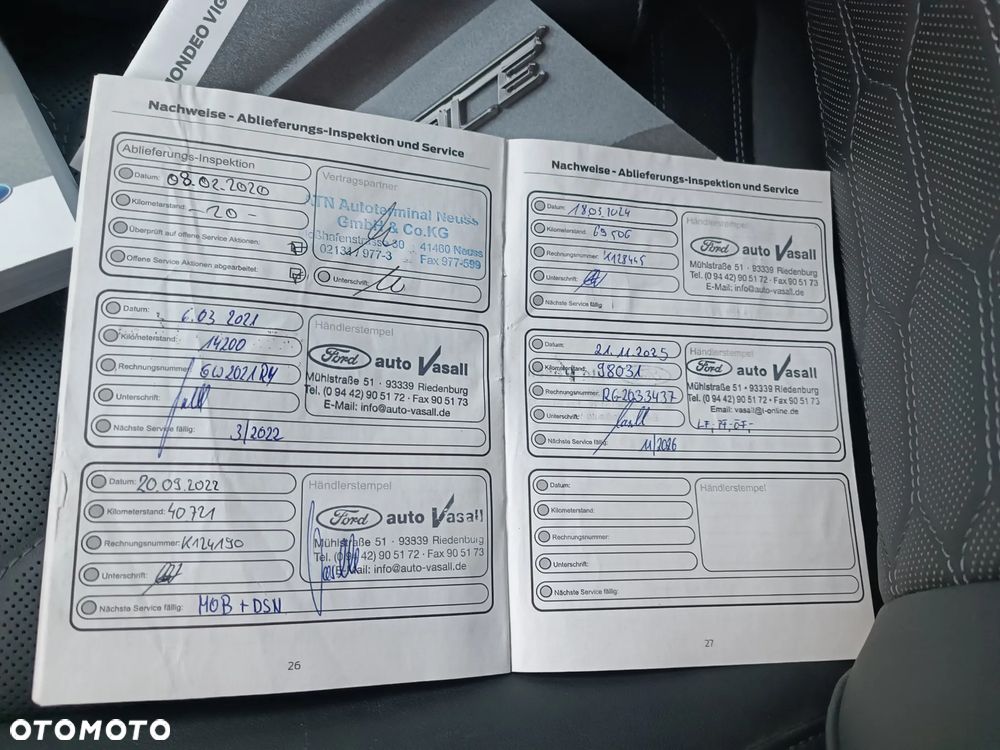 MONDEO VIG
Nachweise - Ablieferungs-Inspektion und Service
Ablieferungs-Inspektion
Datum: 08.02.2020
Kilometerstand: -20-
Überprüft auf offene Service Aktionen:
Offene Service Aktionen abgearbeitet:
Vertragspartner
ATN Autoterminal Neuss
GmbH & Co.KG
30 41460 Neuss
02131 / 977-3 Fax 977-599
Unterschrift:
Datum: 6.03 2021
Kilometerstand: 14200
Rechnungsnummer: GW2021R4
Unterschrift:
Nächste Service fällig: 3/2022
Händlerstempel
Ford auto Vasall
Mühlstraße 51 · 93339 Riedenburg
Tel. (0 94 42) 90 51 72 · Fax 90 51 73
E-Mail: info@auto-vasall.de
Datum: 20.09.2022
Kilometerstand: 40721
Rechnungsnummer: K124190
Unterschrift:
Nächste Service fällig: MOB + DSN
Händlerstempel
Ford auto Vasall
Mühlstraße 51 · 93339 Riedenburg
Tel. (0 94 42) 90 51 72 · Fax 90 51 73
E-Mail: info@auto-vasall.de
26
Nachweise - Ablieferungs-Inspektion und Service
Datum: 18.03.2024
Kilometerstand: 69506
Rechnungsnummer: K128445
Unterschrift:
Nächste Service fällig:
Händlerstempel
Ford auto Vasall
Mühlstraße 51 · 93339 Riedenburg
Tel. (0 94 42) 90 51 72 · Fax 90 51 73
E-Mail: info@auto-vasall.de
Datum: 21.11.2025
Kilometerstand: 98031
Rechnungsnummer: RG-2033437
Unterschrift:
Nächste Service fällig: 11/2026
Händlerstempel
Ford auto Vasall
Mühlstraße 51 · 93339 Riedenburg
Tel. (0 94 42) 90 51 72 · Fax 90 51 73
Email: vasall@t-online.de
Datum:
Kilometerstand:
Rechnungsnummer:
Unterschrift:
Nächste Service fällig:
Händlerstempel
27
OTOMOTO